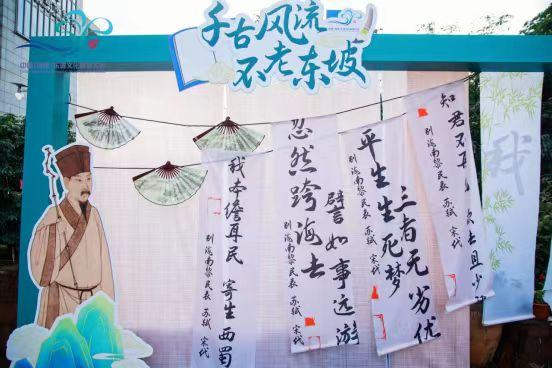 千古风流
不老东坡
我本儋耳民 寄生西蜀
别海南黎民表 苏轼 宋代
忽然跨海去
譬如事远游
别海南黎民表 苏轼 宋代
平生生死梦
三者无劣优
别海南黎民表 苏轼 宋代
知君不再
去且少
别海南黎民表 苏轼 宋代
我